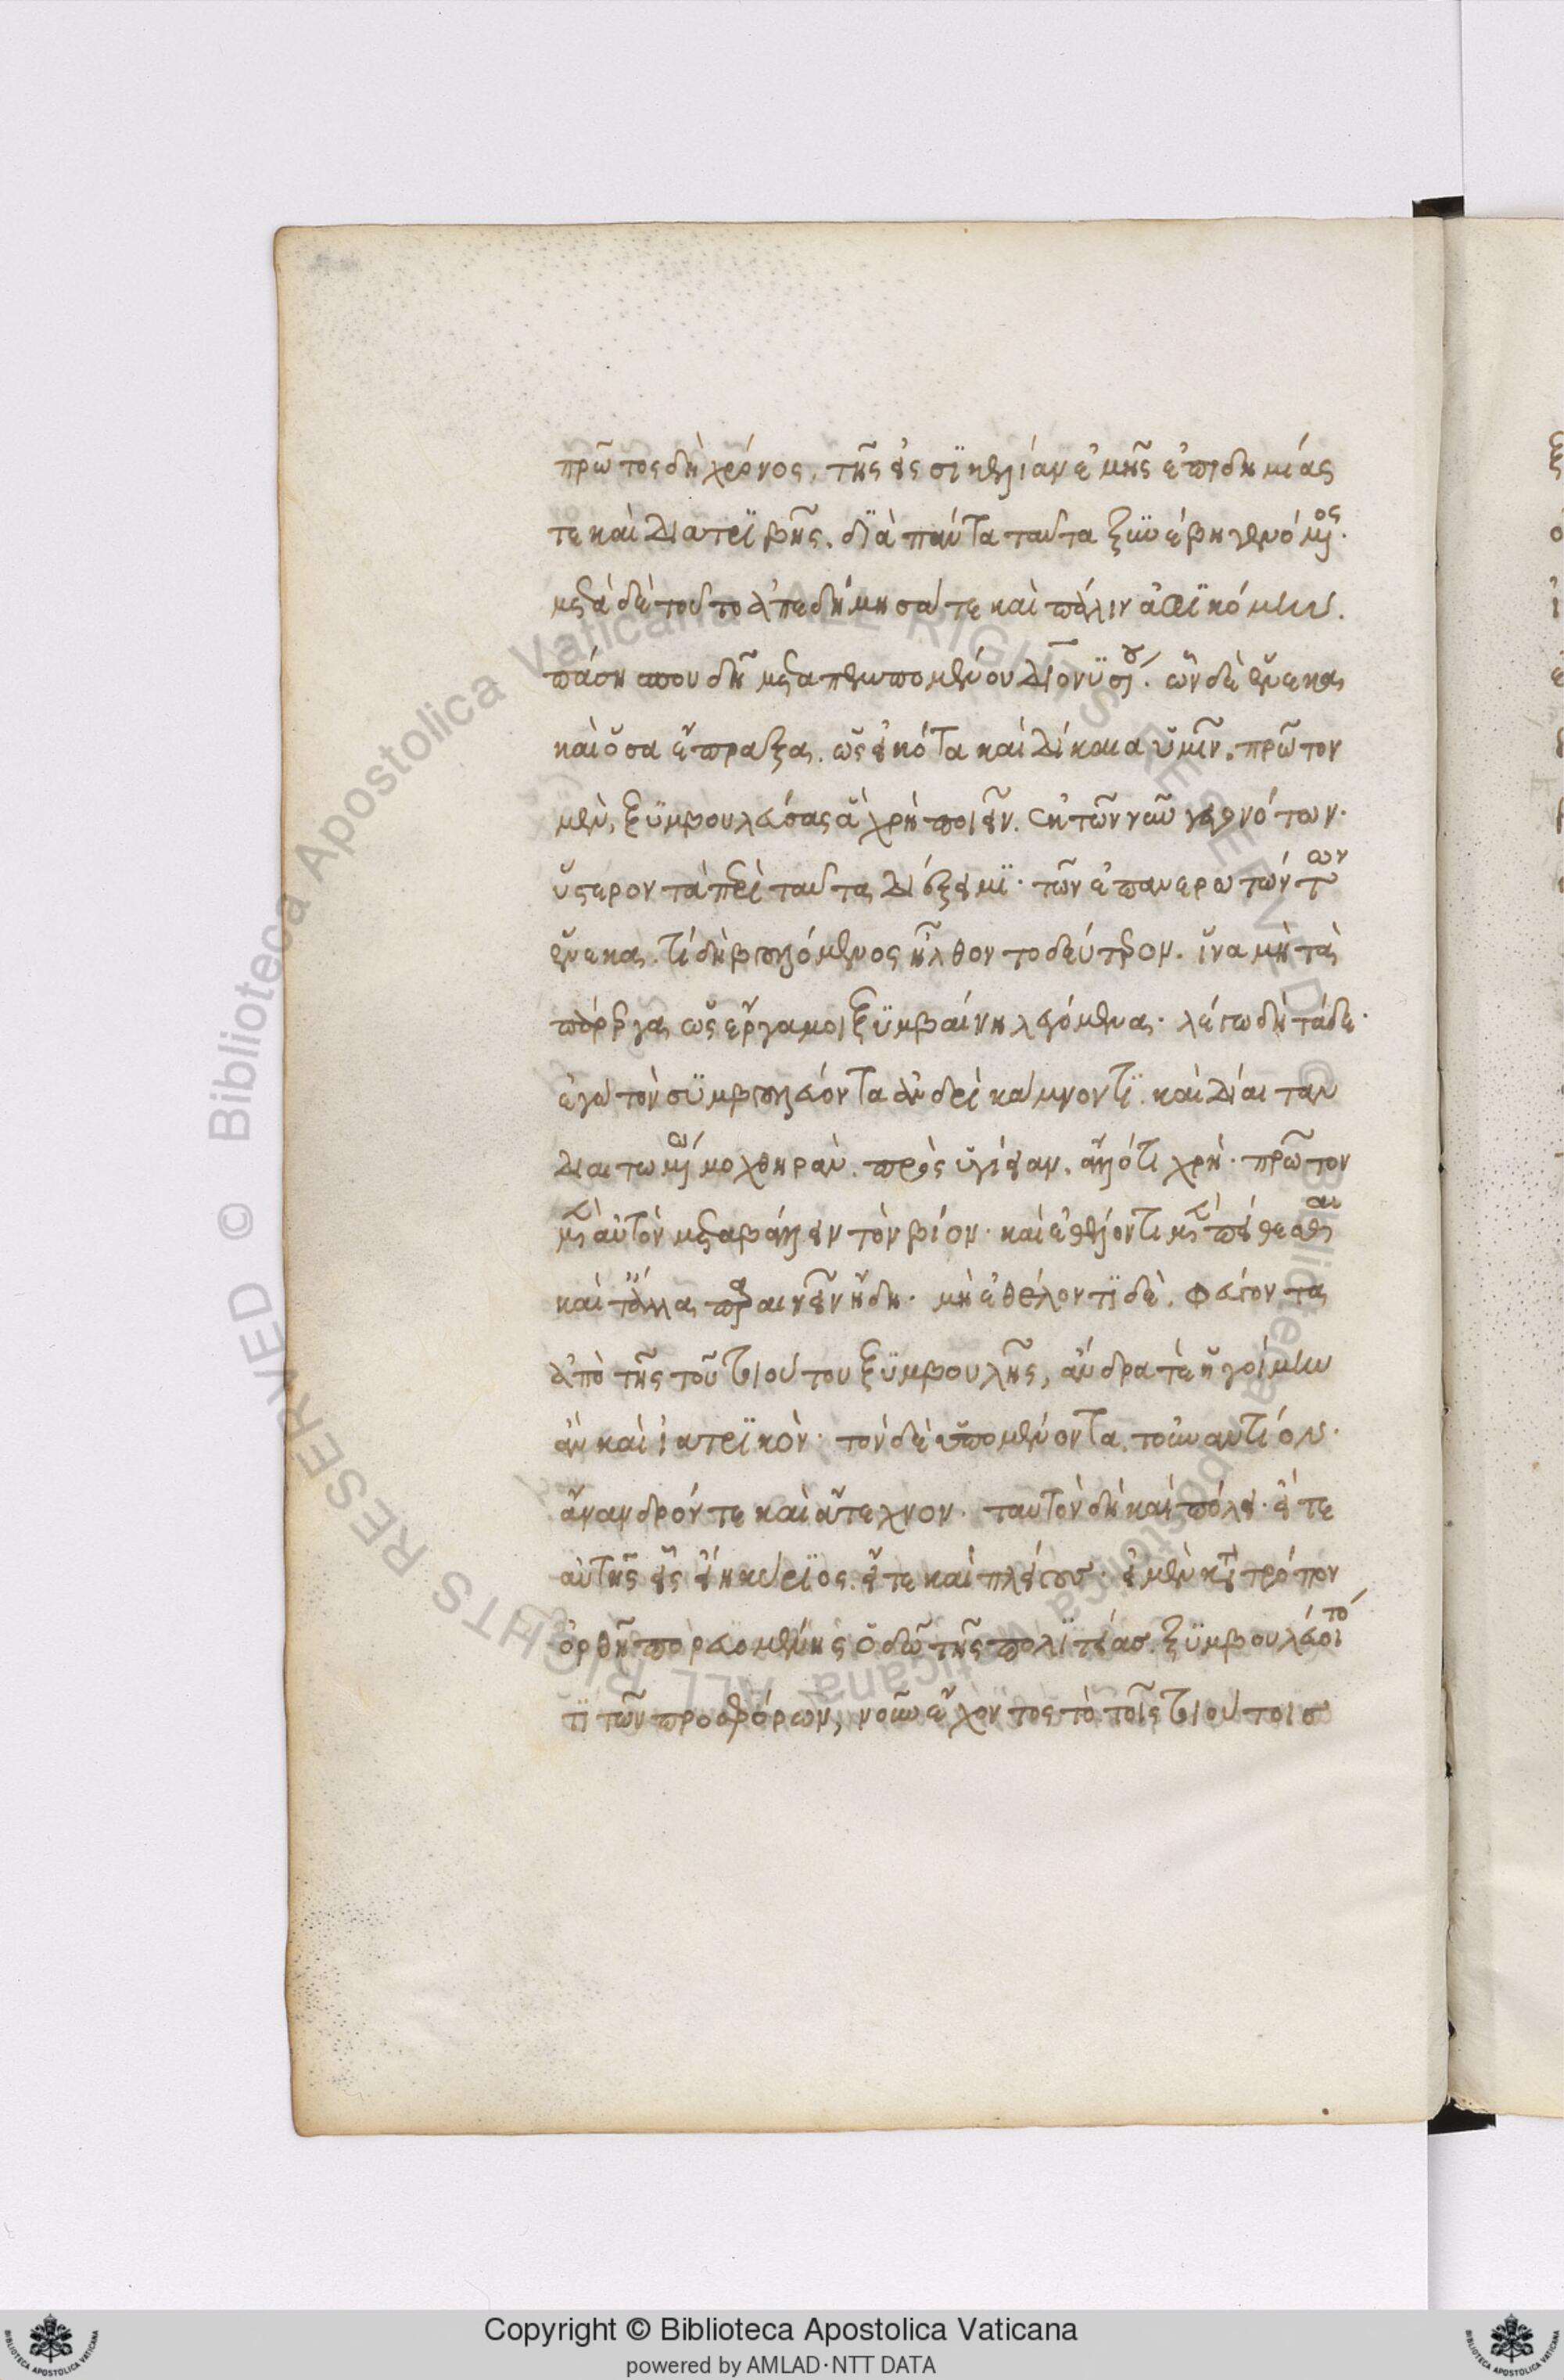 πρῶτος δὴ χρόνος, τῆς εἰς σϊκελίαν ἐμῆς ἐπιδημίας
τε καὶ διατρϊβῆς. δϊὰ πάντα ταῦτα ξυνέβη γενόμενος·
μετὰ δὲ τοῦτο ἀπεδήμησά τε καὶ πάλιν ἀφϊκόμην.
πάση σπουδῆ μεταπεμπομένου διονϋσίου. ὧν δὲ ἕνεκα,
καὶ ὅσα ἔπραξα. ὡς εἰκότα καὶ δίκαια ὑμῖν. πρῶτον
μὲν, ξϋμβουλεύσας ἃ χρὴ ποιεῖν. ἐκ τῶν νῦν γεγονότων·
ὕστερον τὰ περὶ ταῦτα διέξειμϊ· τῶν ἐπανερωτώντων
ἕνεκα. τί δὴ βουλόμενος ἦλθον τὸ δεύτερον. ἵνα μὴ τὰ
πάρεργα, ὡς ἔργα μοι ξϋμβαίνη λεγόμενα· λέγω δὴ τάδε·
ἐγὼ τὸν σϋμβουλεύοντα ἀνδρὶ κάμνοντϊ. καὶ δίαιταν
διαιτωμένω μοχθηρὰν. πρὸς ὑγίειαν. ἄλλο τι χρὴ· πρῶτον
μὲν αὐτὸν μεταβάλλειν τὸν βίον· καὶ ἐθέλοντι μὲν πείθεσθαι
καὶ τἄλλα παραινεῖν ἤδη· μὴ ἐθέλοντϊ δὲ. φεύγοντα
ἀπὸ τῆς τοῦ τοιούτου ξϋμβουλῆς, ἄνδρα τὲ ἡγοίμην
ἂν καὶ ἰατρϊκὸν· τὸν δὲ ὑπομένοντα. τοὐναντίον·
ἄνανδρόν τε καὶ ἄτεχνον· ταυτὸν δὴ καὶ πόλει· εἴτε
αὐτῆς εἷς εἴη κύρϊος. εἴτε καὶ πλείους· εἰ μὲν κατὰ τρόπον
ὀρθῆ πορευομένης ὁδῶ τῆς πολϊτείασ. ξϋμβουλεύοιτό
τϊ τῶν προσφόρων, νοῦν ἔχοντος τὸ τοῖς τοιούτοισ
Copyright © Biblioteca Apostolica Vaticana
powered by AMLAD·NTT DATA